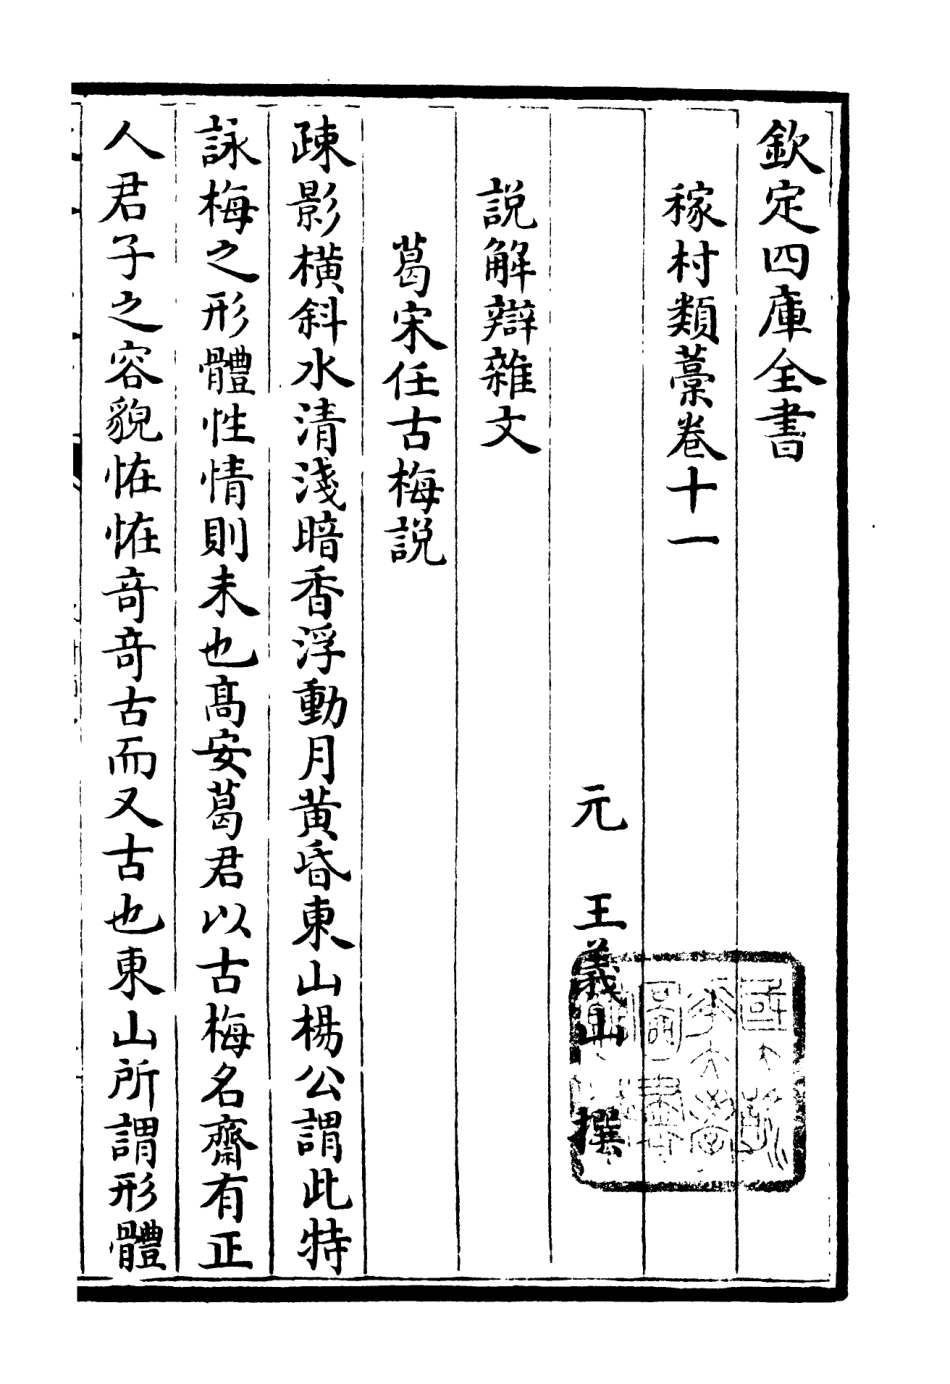 欽定四庫全書
稼村類藁卷十一
元　王義山　撰
說解辯雜文
葛宋任古梅說
疎影橫斜水清淺暗香浮動月黃昏東山楊公謂此特
詠梅之形體性情則未也髙安葛君以古梅名齋有正
人君子之容貌恠恠竒竒古而又古也東山所謂形體